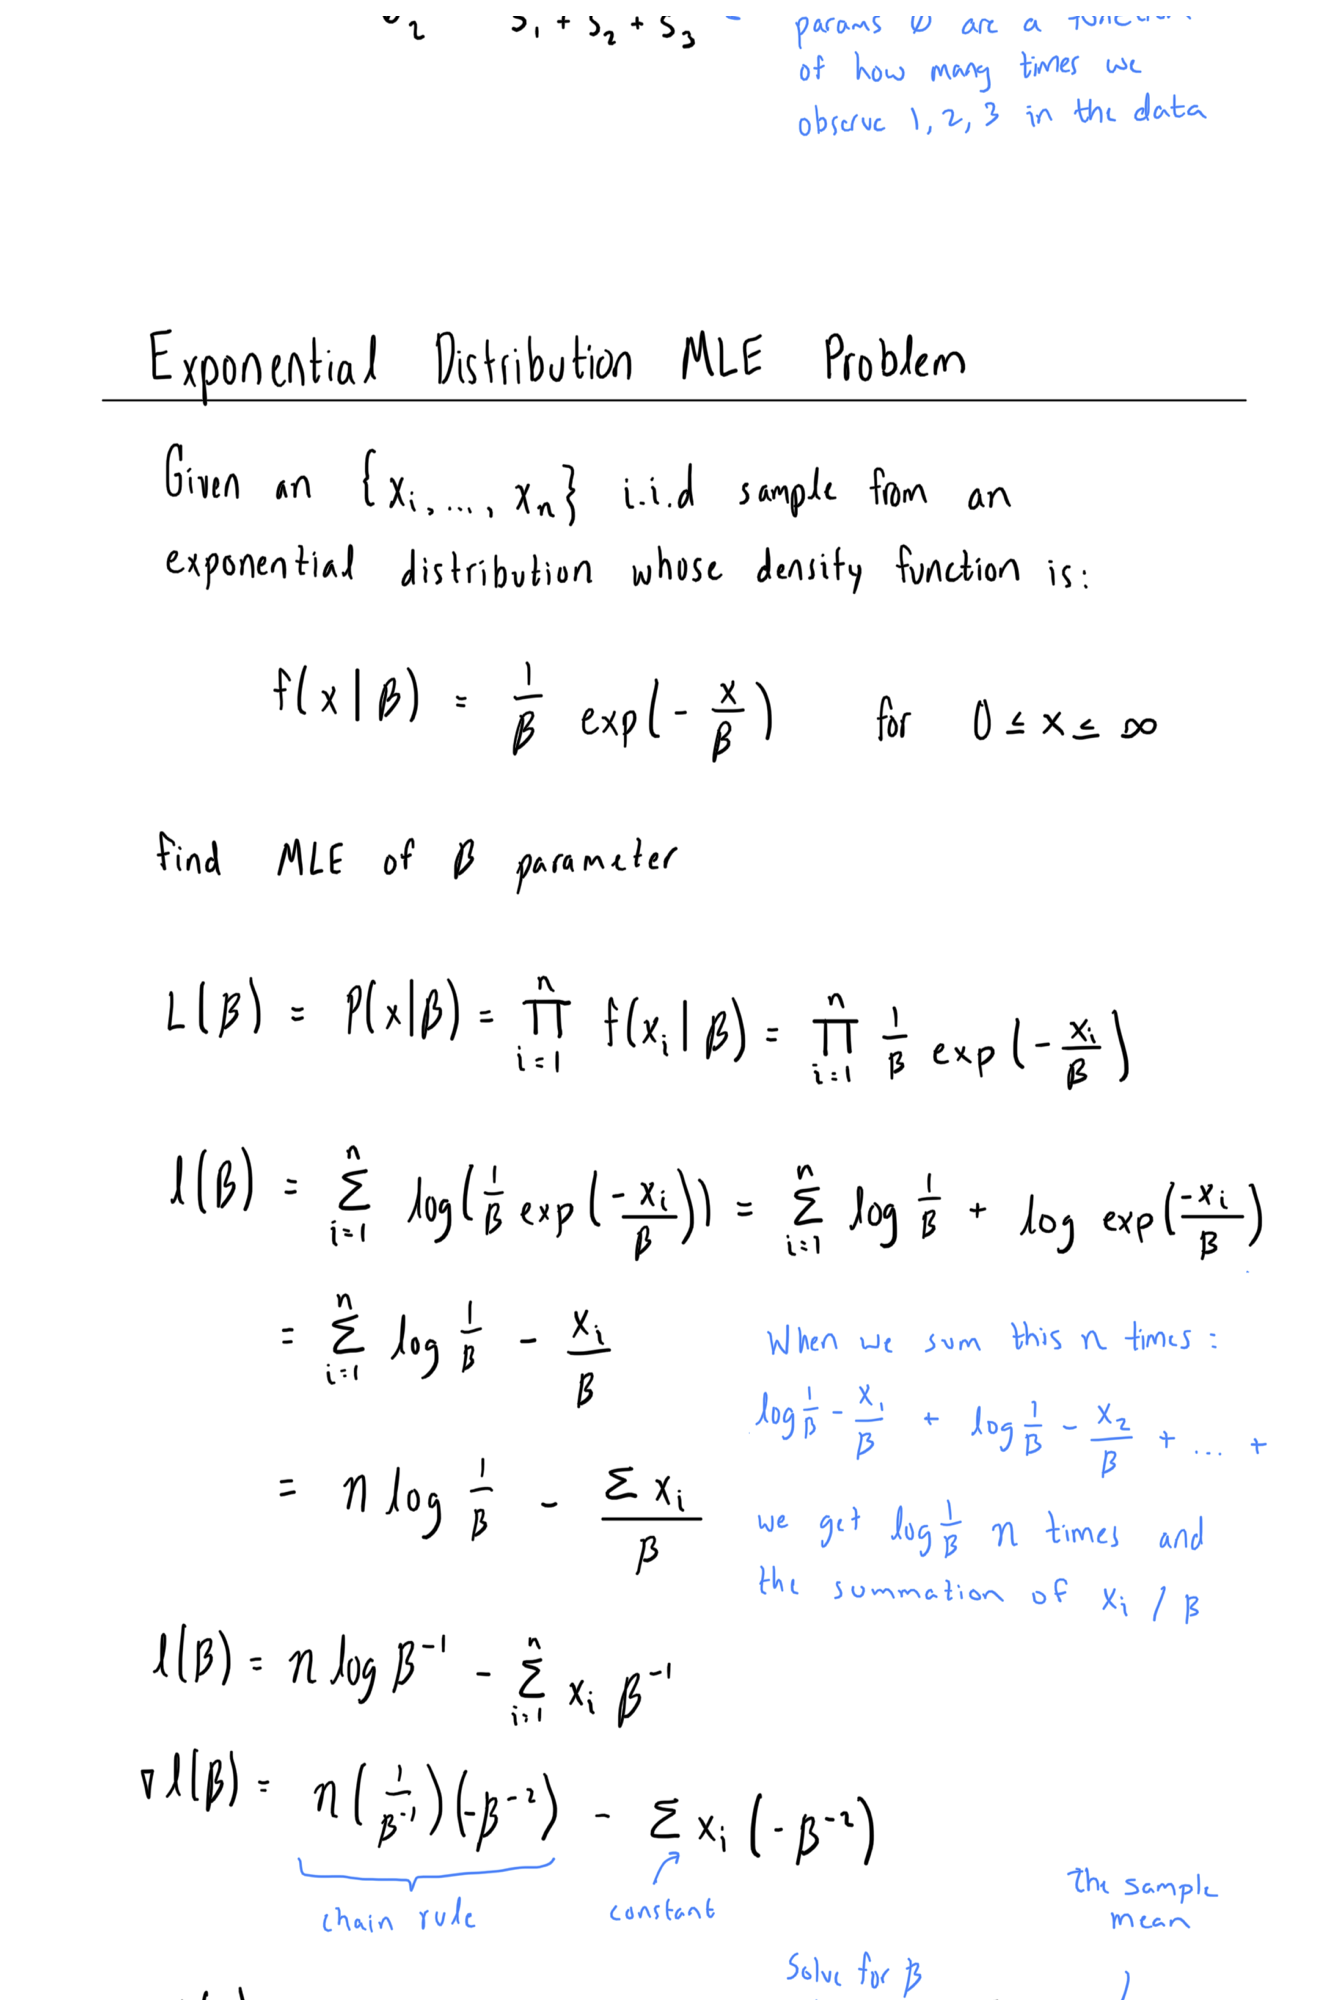 S₁ + S₂ + S₃
params Ø are a
of how many times we
observe 1, 2, 3 in the data
Exponential Distribution MLE Problem
Given an {xᵢ, ..., xₙ} i.i.d sample from an
exponential distribution whose density function is:
f(x|β) = 1/β exp(- x/β) for 0 ≤ x ≤ ∞
find MLE of β parameter
L(β) = P(x|β) = ∏ᵢ₌₁ⁿ f(xᵢ|β) = ∏ᵢ₌₁ⁿ 1/β exp(- xᵢ/β)
l(β) = Σᵢ₌₁ⁿ log(1/β exp(-xᵢ/β)) = Σᵢ₌₁ⁿ log 1/β + log exp(-xᵢ/β)
= Σᵢ₌₁ⁿ log 1/β - xᵢ/β
When we sum this n times:
log 1/β - x₁/β + log 1/β - x₂/β + ... +
= n log 1/β - Σ xᵢ/β
we get log 1/β n times and
the summation of xᵢ / β
l(β) = n log β⁻¹ - Σᵢ₌₁ⁿ xᵢ β⁻¹
∇ l(β) = n(1/β⁻¹)(-β⁻²) - Σ xᵢ (-β⁻²)
chain rule
constant
the sample
mean
Solve for β